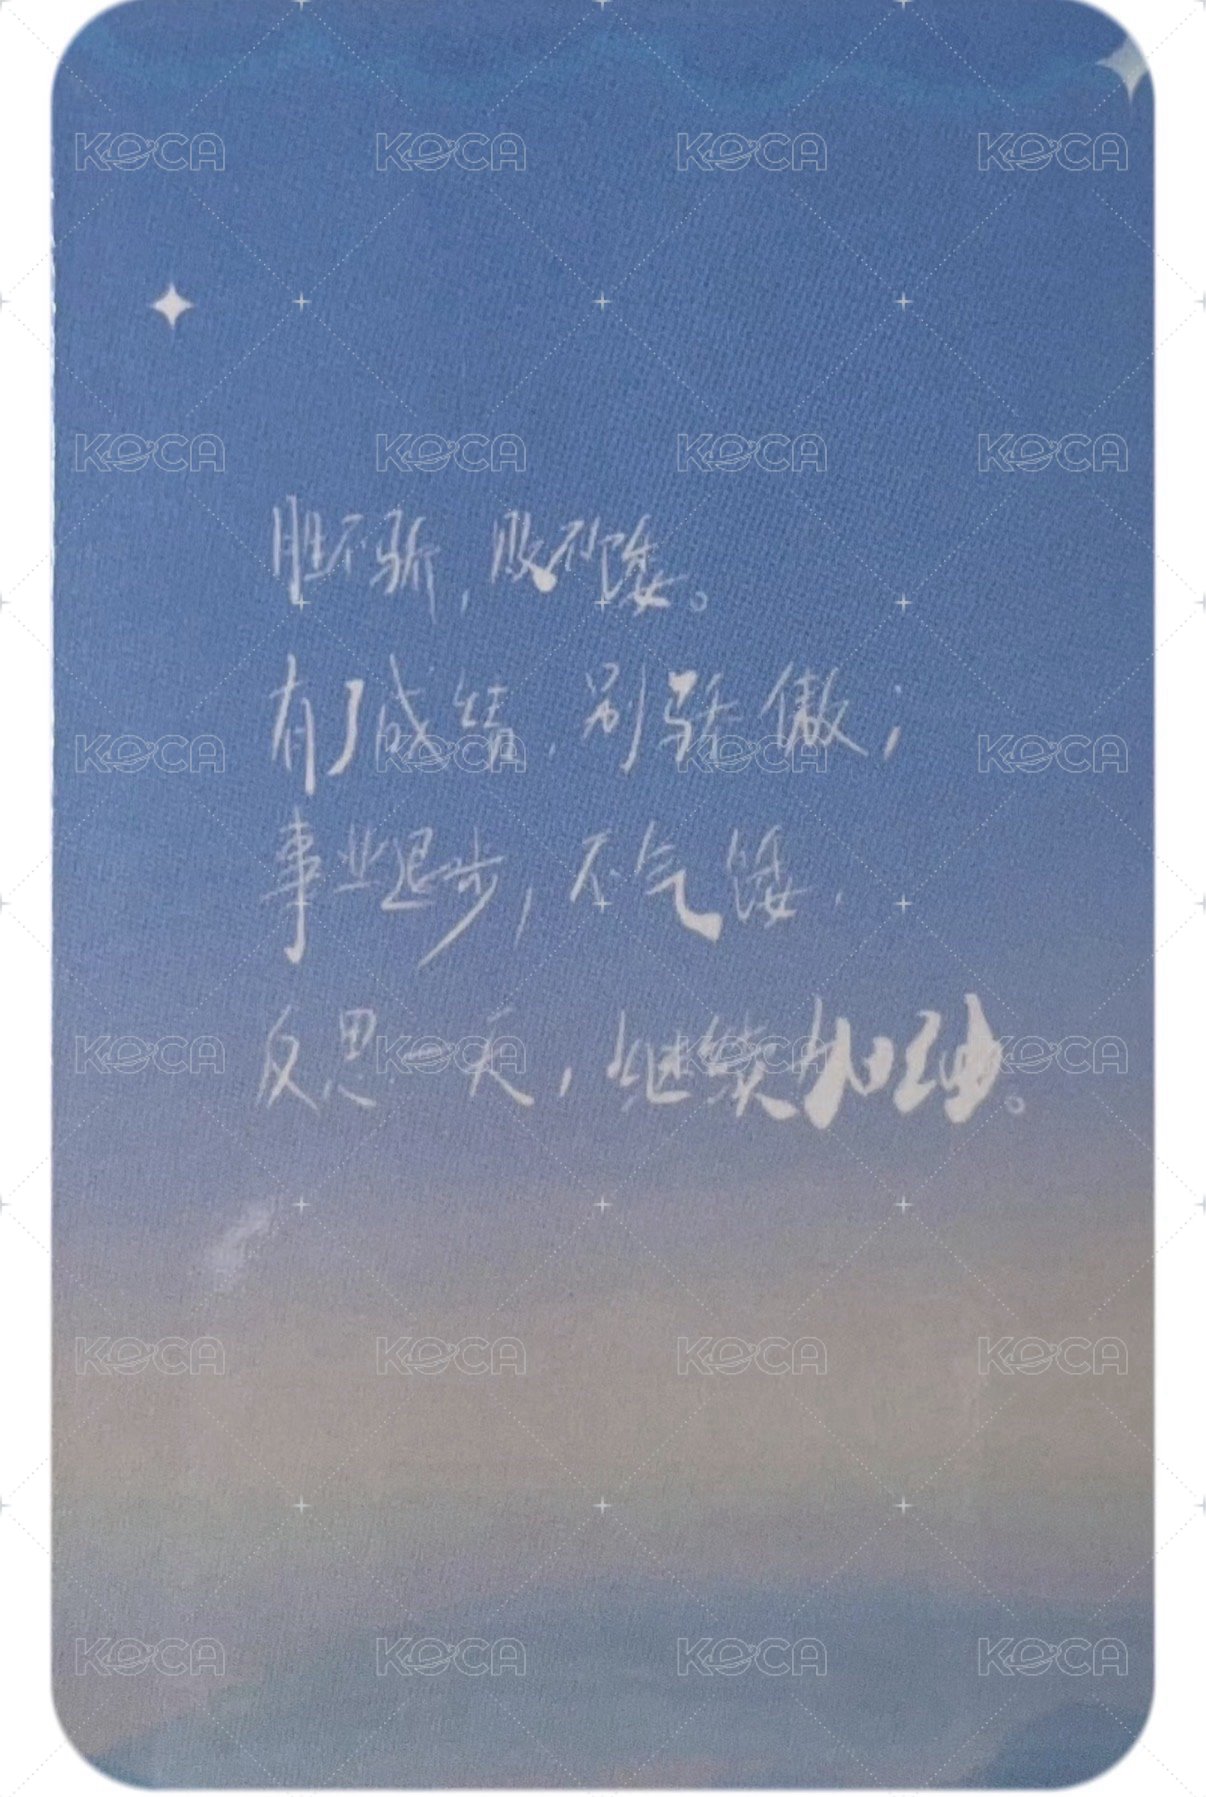 KOCA KOCA KOCA KOCA
KOCA KOCA KOCA KOCA
胜不骄，败不馁。
有了成绩，别骄傲；
KOCA KOCA KOCA KOCA
事业退步，不气馁，
反思一天，继续加。
KOCA KOCA KOCA KOCA
KOCA KOCA KOCA KOCA
KOCA KOCA KOCA KOCA